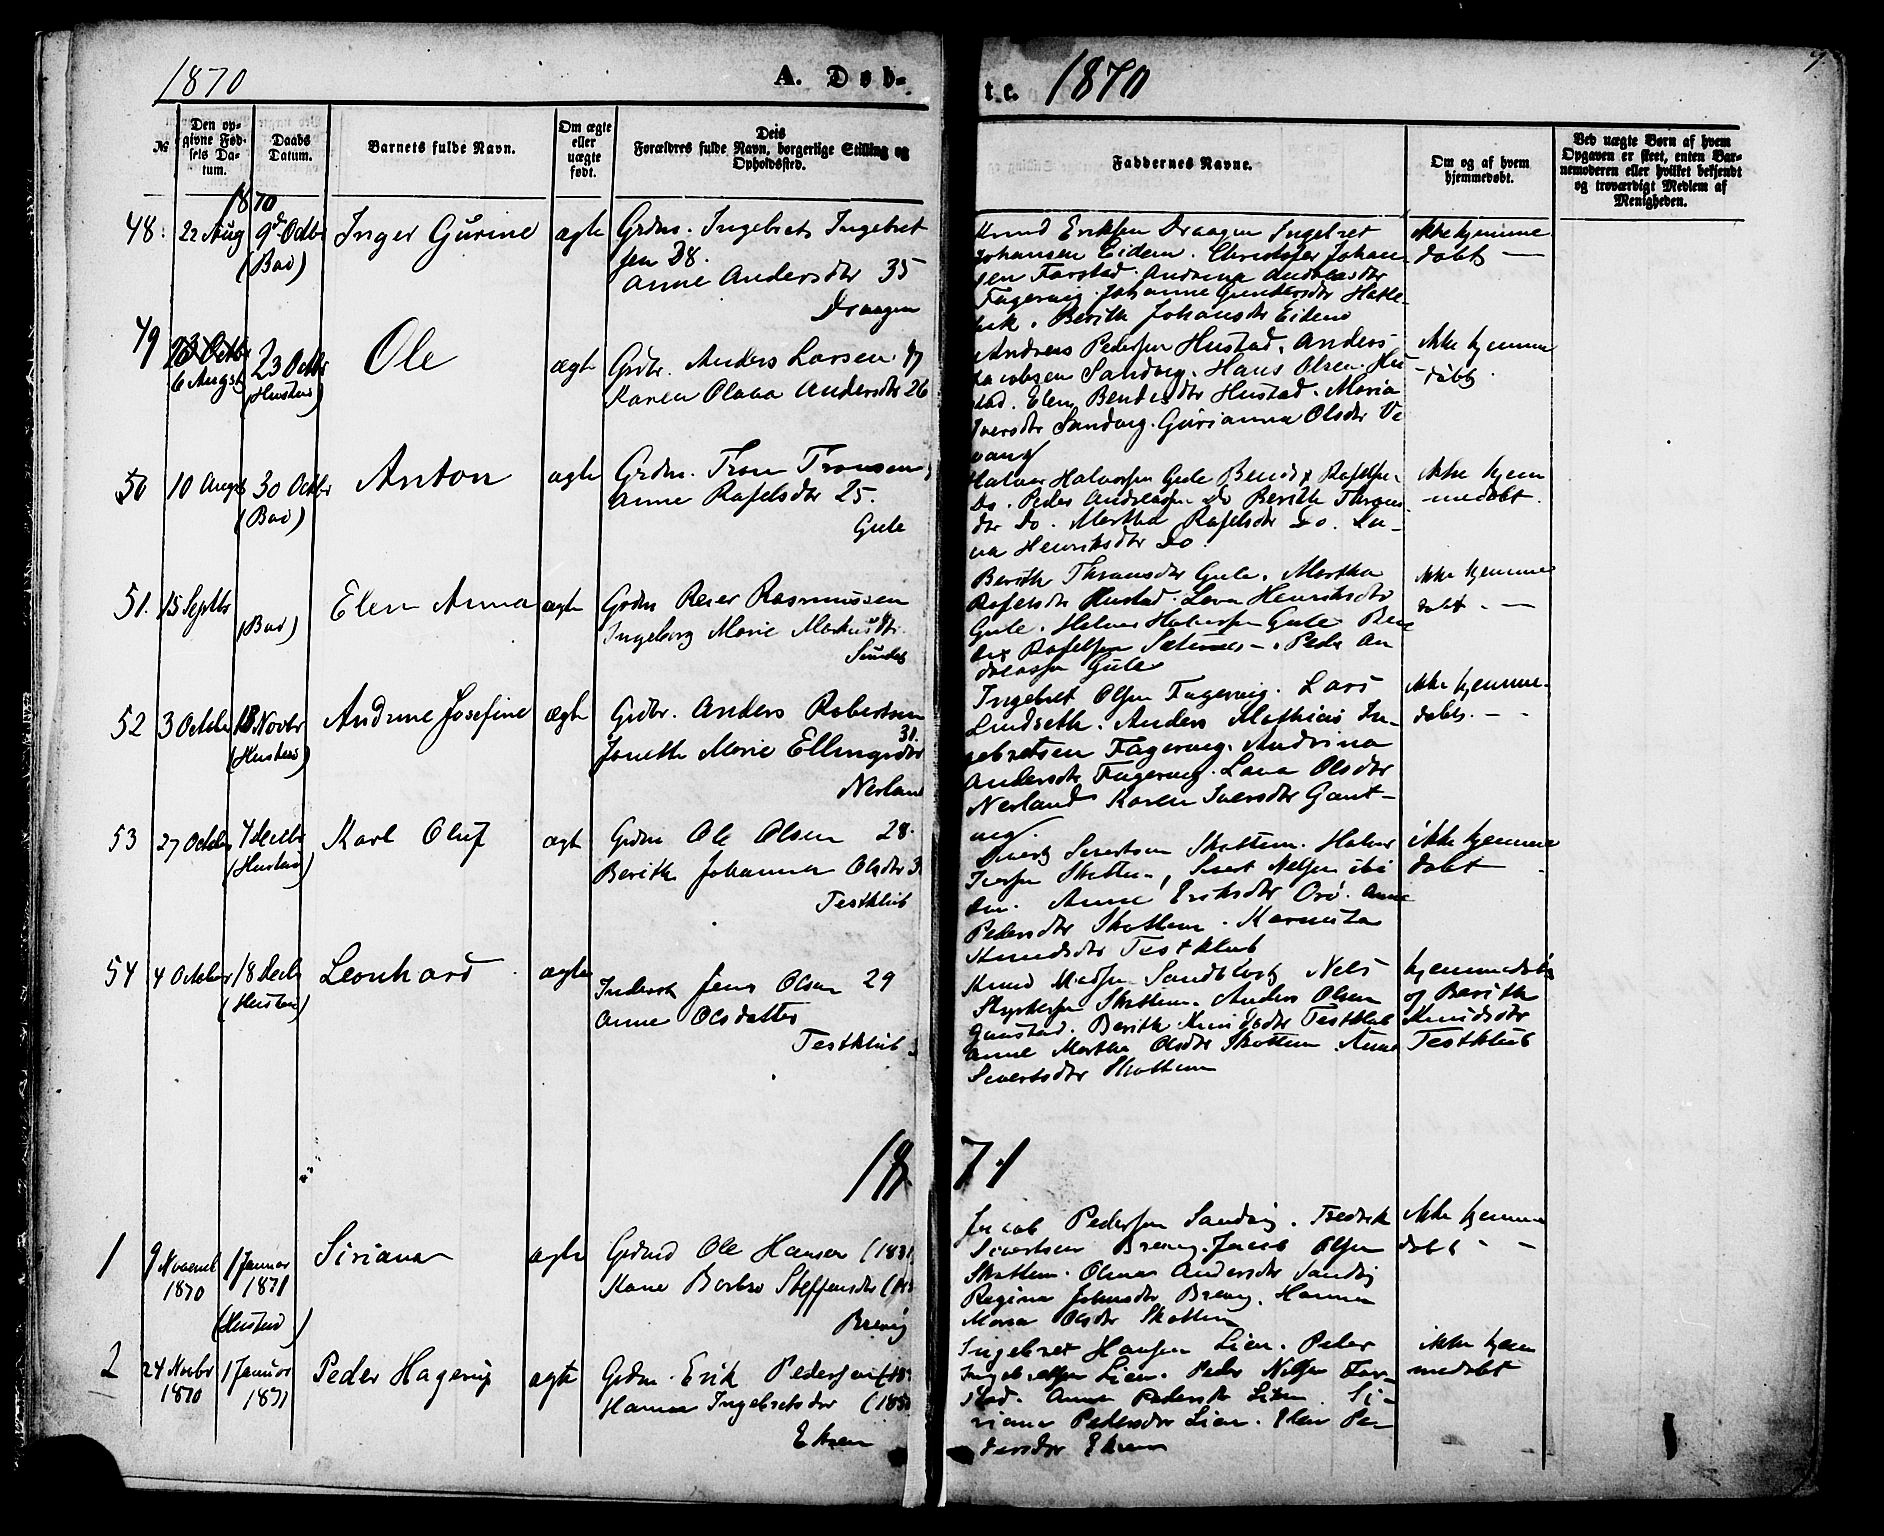 1870
A. Døb-
te. 1870
№
Den op-
givne Fød-
sels Da-
tum.
Daabs
Datum.
Barnets fulde Navn.
Om ægte
eller
uægte
født.
Deis
Forældres fulde Navn, borgerlige Stilling og
Opholdssted.
Faddernes Navne.
Om og af hvem
hjemmedøbt.
Ved uægte Børn af hvem
Opgaven er skeet, enten Bar-
nemoderen eller hvilket bekjendt
og troværdigt Medlem af
Menigheden.
1870
48. 22 Aug 9d Octbr Inger Gurine ægte Grdm. Ingebret Ingebret
(Bud) sen 38.
Anne Andersdtr 35
Draagen
Knud Eriksen Draagen Ingebret
Johansen Eidem. Christofer Johan-
sen Farstad. Andrina Andreasdtr
Fagervig. Johanne Gundersdtr Hatle-
bek. Berith Johansdtr Eidem
ikke hjemme
døbt —
49 23 Octbr 23 Octbr Ole ægte Grdbr. Anders Larsen
6 Augst (Hustad) Karen Olava Andersdtr 26
Andreas Pedersen Hustad. Anders
Jacobsen Sandvig. Hans Olsen Hu
stad. Elen Bendesdtr Hustad. Maria
Iversdtr Sandvig. Gurianna Olsdtr Ve
vang
ikke hjemme
døbt.
50 10 Augst 30 Octbr Anton ægte Grdm. Tron Tronsen
(Bud) Anne Rafelsdtr 25.
Gule
Halver Halvorsen Gule Bendix Rafelsen
Do. Peder Andreassen Do Berith Throns
dtr Do. Martha Rafelsdtr Do. La-
va Henriksdtr Do.
ikke hjem
medøbt.
51. 15 Septbr (Bud) Elen Anna ægte Grdm Reier Rasmussen
Ingeborg Marie Markusdtr.
Sundet
Berith Thronsdtr Gule. Martha
Rafelsdtr Hustad. Lava Henriksdtr
Gule. Halver Halvorsen Gule Ben
dix Rafelsen Sætrenes. Peder An
dreassen Gule
ikke hjemme
døbt. —
52 3 October 13 Novbr Andrine Josefine ægte Grdbr. Anders Robertsen
(Hustad) Jonette Marie Ellingsdtr 31.
Nerland
Ingebret Olsen Fagervig. Lars
Lindseth. Anders Mathias In-
gebretsen Fagervig. Andrina
Andersdtr Fagervig. Lava Olsdtr
Nerland Karen Iversdtr Gaut-
vig.
ikke hjemme-
døbt. —
53 27 October 4 Decbr Karl Oluf ægte Grdm Ole Olsen 28.
(Hustad) Berith Johanna Olsdtr 3
Testklub
Sivert Sivertsen Skottem. Halvor
Iversen Skottem, Sivert Nelsen ibi
dm. Anne Eriksdtr Orø. Anne
Pedersdtr Skottem. Karenita
Knudsdtr Testklub
ikke hjemme
døbt
54 4 October 18 Decbr Leonhard ægte Inderst Jens Olsen 29
(Hustad) Anne Olsdatter
Testklub
Knud Madsen Sandblost Nels
Styrkersen Skottem. Anders Olsen
Gaustad. Berith Knudsdtr Testklub
Anne Martha Olsdtr Skottem. Anne
Sivertsdtr Skottem
hjemmedøbt
of Berith
Knudsdtr
Testklub
1871
1 9 Novemb 1 Januar Siriana ægte Grdmd Ole Hansen (1831
1870 1871 Kane Barbro Steffensdtr (18
(Hustad) Brevig
Jacob Pedersen Sandvig. Fredrik
Sivertsen Brevig. Jacob Olsen
Skottem. Olina Andersdtr Sandvig
Regina Johnsdtr Brevig. Hanna
Maria Olsdtr Skottem
ikke hjemme
døbt —
2 24 Novbr 1 Januar Peder Hagerup ægte Grdm. Erik Pedersen (18
1870 1871 Hanna Ingebretsdtr (185
Ekren
Ingebret Hansen Lien. Peder
Ingebretsen Lien. Peder Nelsen Far-
stad. Anne Pedersdtr Lien. Si-
riana Pedersdtr Lien. Elen Pe-
dersdtr Ekren
ikke hjem
medøbt